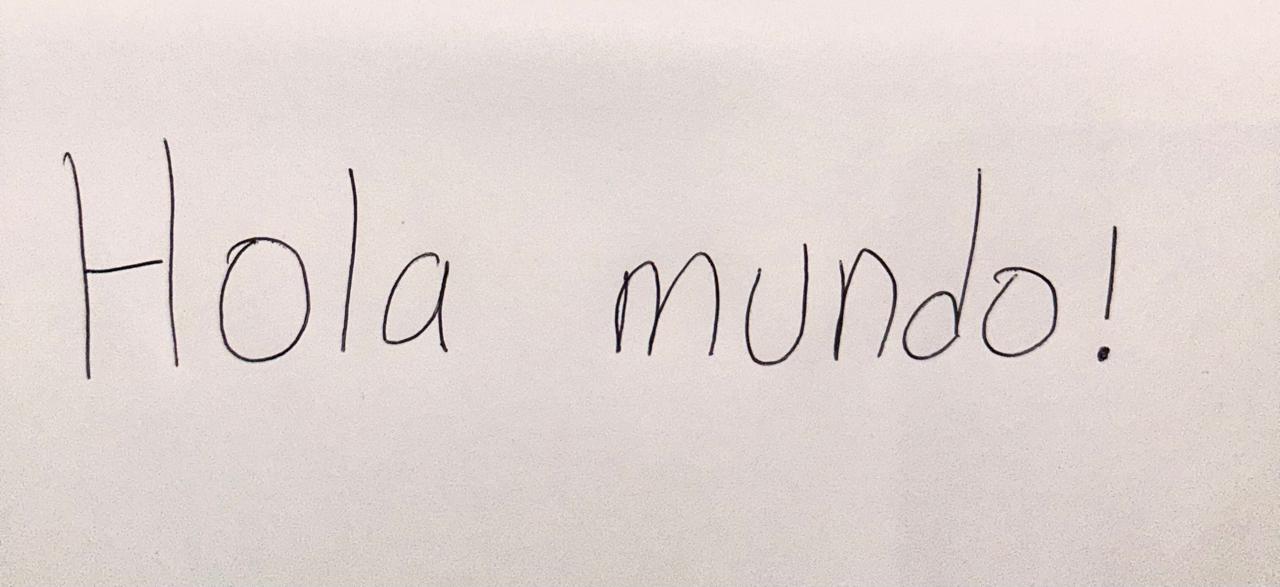 Hola mundo!